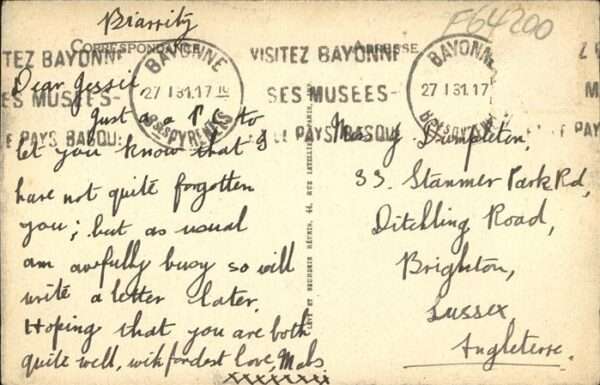 Biarritz
F64200
CORRESPONDANCE
ADRESSE
VISITEZ BAYONNE
SES MUSEES-
LE PAYS BASQUE
BAYONNE
27 1 31.17
BSES PYRENEES
Dear Jessie
Just a P.C. to
let you know that I
have not quite forgotten
you; but as usual
am awfully busy so will
write a letter later.
Hoping that you are both
quite well, with fondest love, Mabs
xxxxxxxx
LEVY ET NEURDEIN RÉUNIS, 44, RUE LETELLIER, PARIS
BAYONNE
27 1 31.17
BSES PYRENEES
Mrs J Dumpleton,
33. Stanmer Park Rd,
Ditchling Road,
Brighton,
Sussex,
Angleterre.